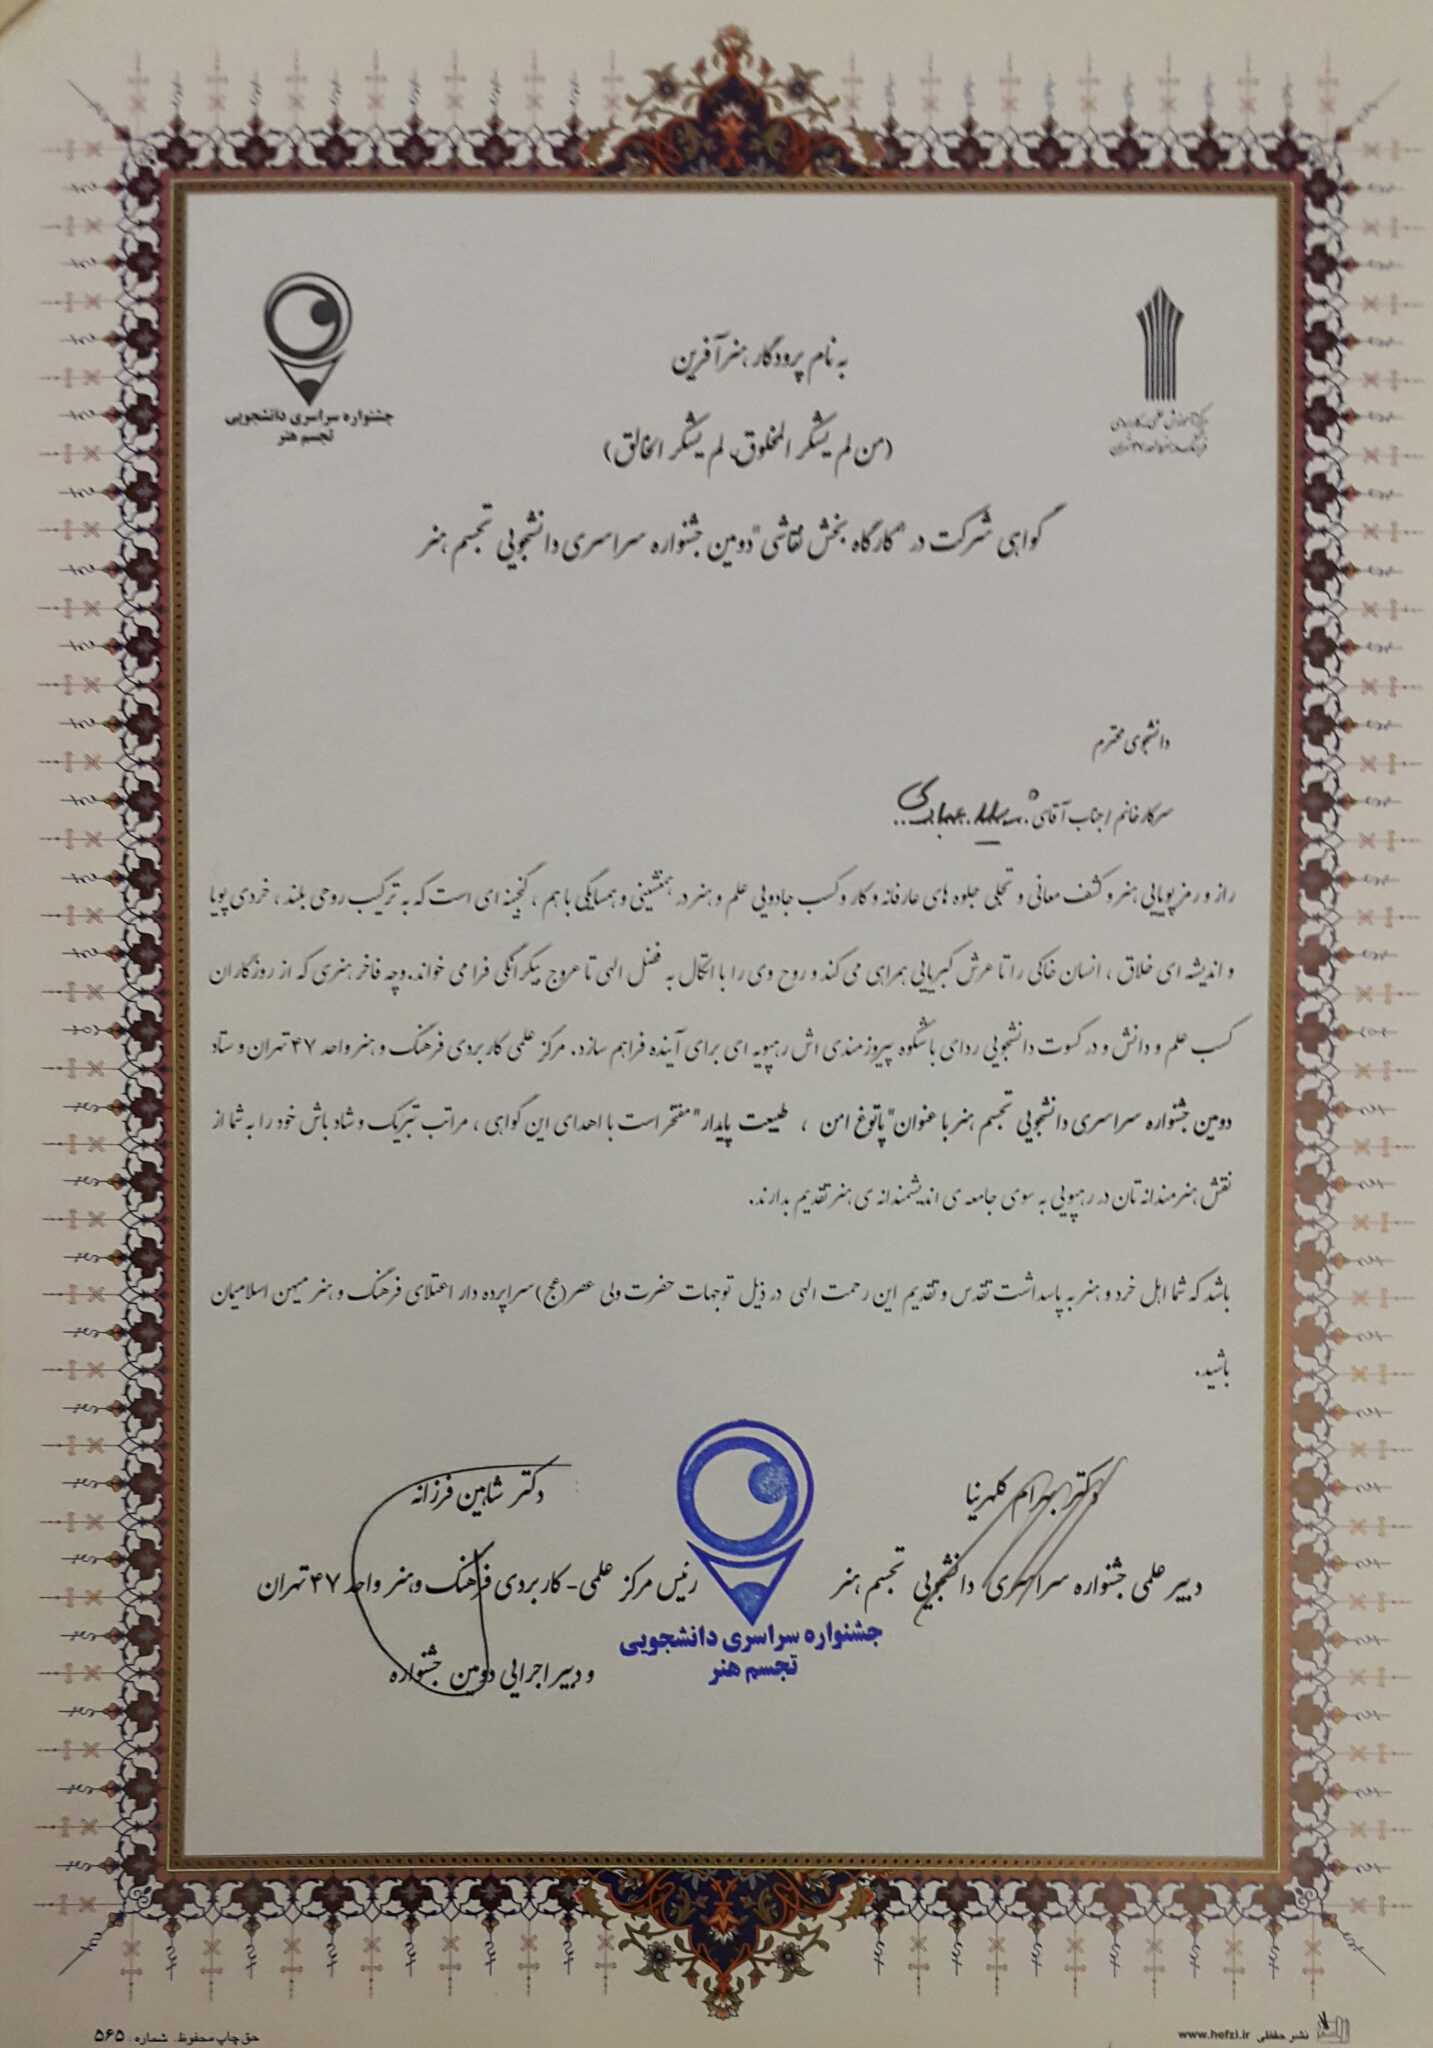 جشنواره سراسری دانشجویی
تجسم هنر
مرکز آموزش علمی کاربردی
فرهنگ و هنر واحد ۴۷ تهران
به نام پرودگار هنرآفرین
(من لم یشکر المخلوق، لم یشکر الخالق)
گواهی شرکت در "کارگاه بخش نقاشی" دومین جشنواره سراسری دانشجویی تجسم هنر
دانشجوی محترم
سرکار خانم / جناب آقای
راز و رمز پویایی هنر و کشف معانی و تجلی جلوه های عارفانه و کار و کسب جادویی علم و هنر در همنشینی و همسایگی با هم ، گنجینه ای است که به ترکیب روحی بلند ، خردی پویا
و اندیشه ای خلاق ، انسان خاکی را تا عرش کبریایی همراهی می کند و روح وی را با اتکال به فضل الهی تا عروج بیکرانگی فرا می خواند. وچه فاخر هنری که از روزگاران
کسب علم و دانش و در کسوت دانشجویی ردای با شکوه پیروزمندی اش رهپویه ای برای آینده فراهم سازد. مرکز علمی کاربردی فرهنگ و هنر واحد ۴۷ تهران و ستاد
دومین جشنواره سراسری دانشجویی تجسم هنر با عنوان "پاتوغ امن ، طبیعت پایدار" مفتخر است با اهدای این گواهی ، مراتب تبریک و شاد باش خود را به شما از
نقش هنرمندانه تان در رهپویی به سوی جامعه ی اندیشمندانه ی هنر تقدیم بدارند.
باشد که شما اهل خرد و هنر به پاسداشت تقدس و تقدیم این رحمت الهی در ذیل توجهات حضرت ولی عصر (عج) سراپرده دار اعتلای فرهنگ و هنر میهن اسلامیمان
باشید.
دکتر بهرام کلهرنیا
دبیر علمی جشنواره سراسری دانشجویی تجسم هنر
جشنواره سراسری دانشجویی
تجسم هنر
دکتر شاهین فرزانه
رئیس مرکز علمی - کاربردی فرهنگ و هنر واحد ۴۷ تهران
و دبیر اجرایی دومین جشنواره
نشر حفظی www.hefzi.ir
حق چاپ محفوظ. شماره: ۵۶۵